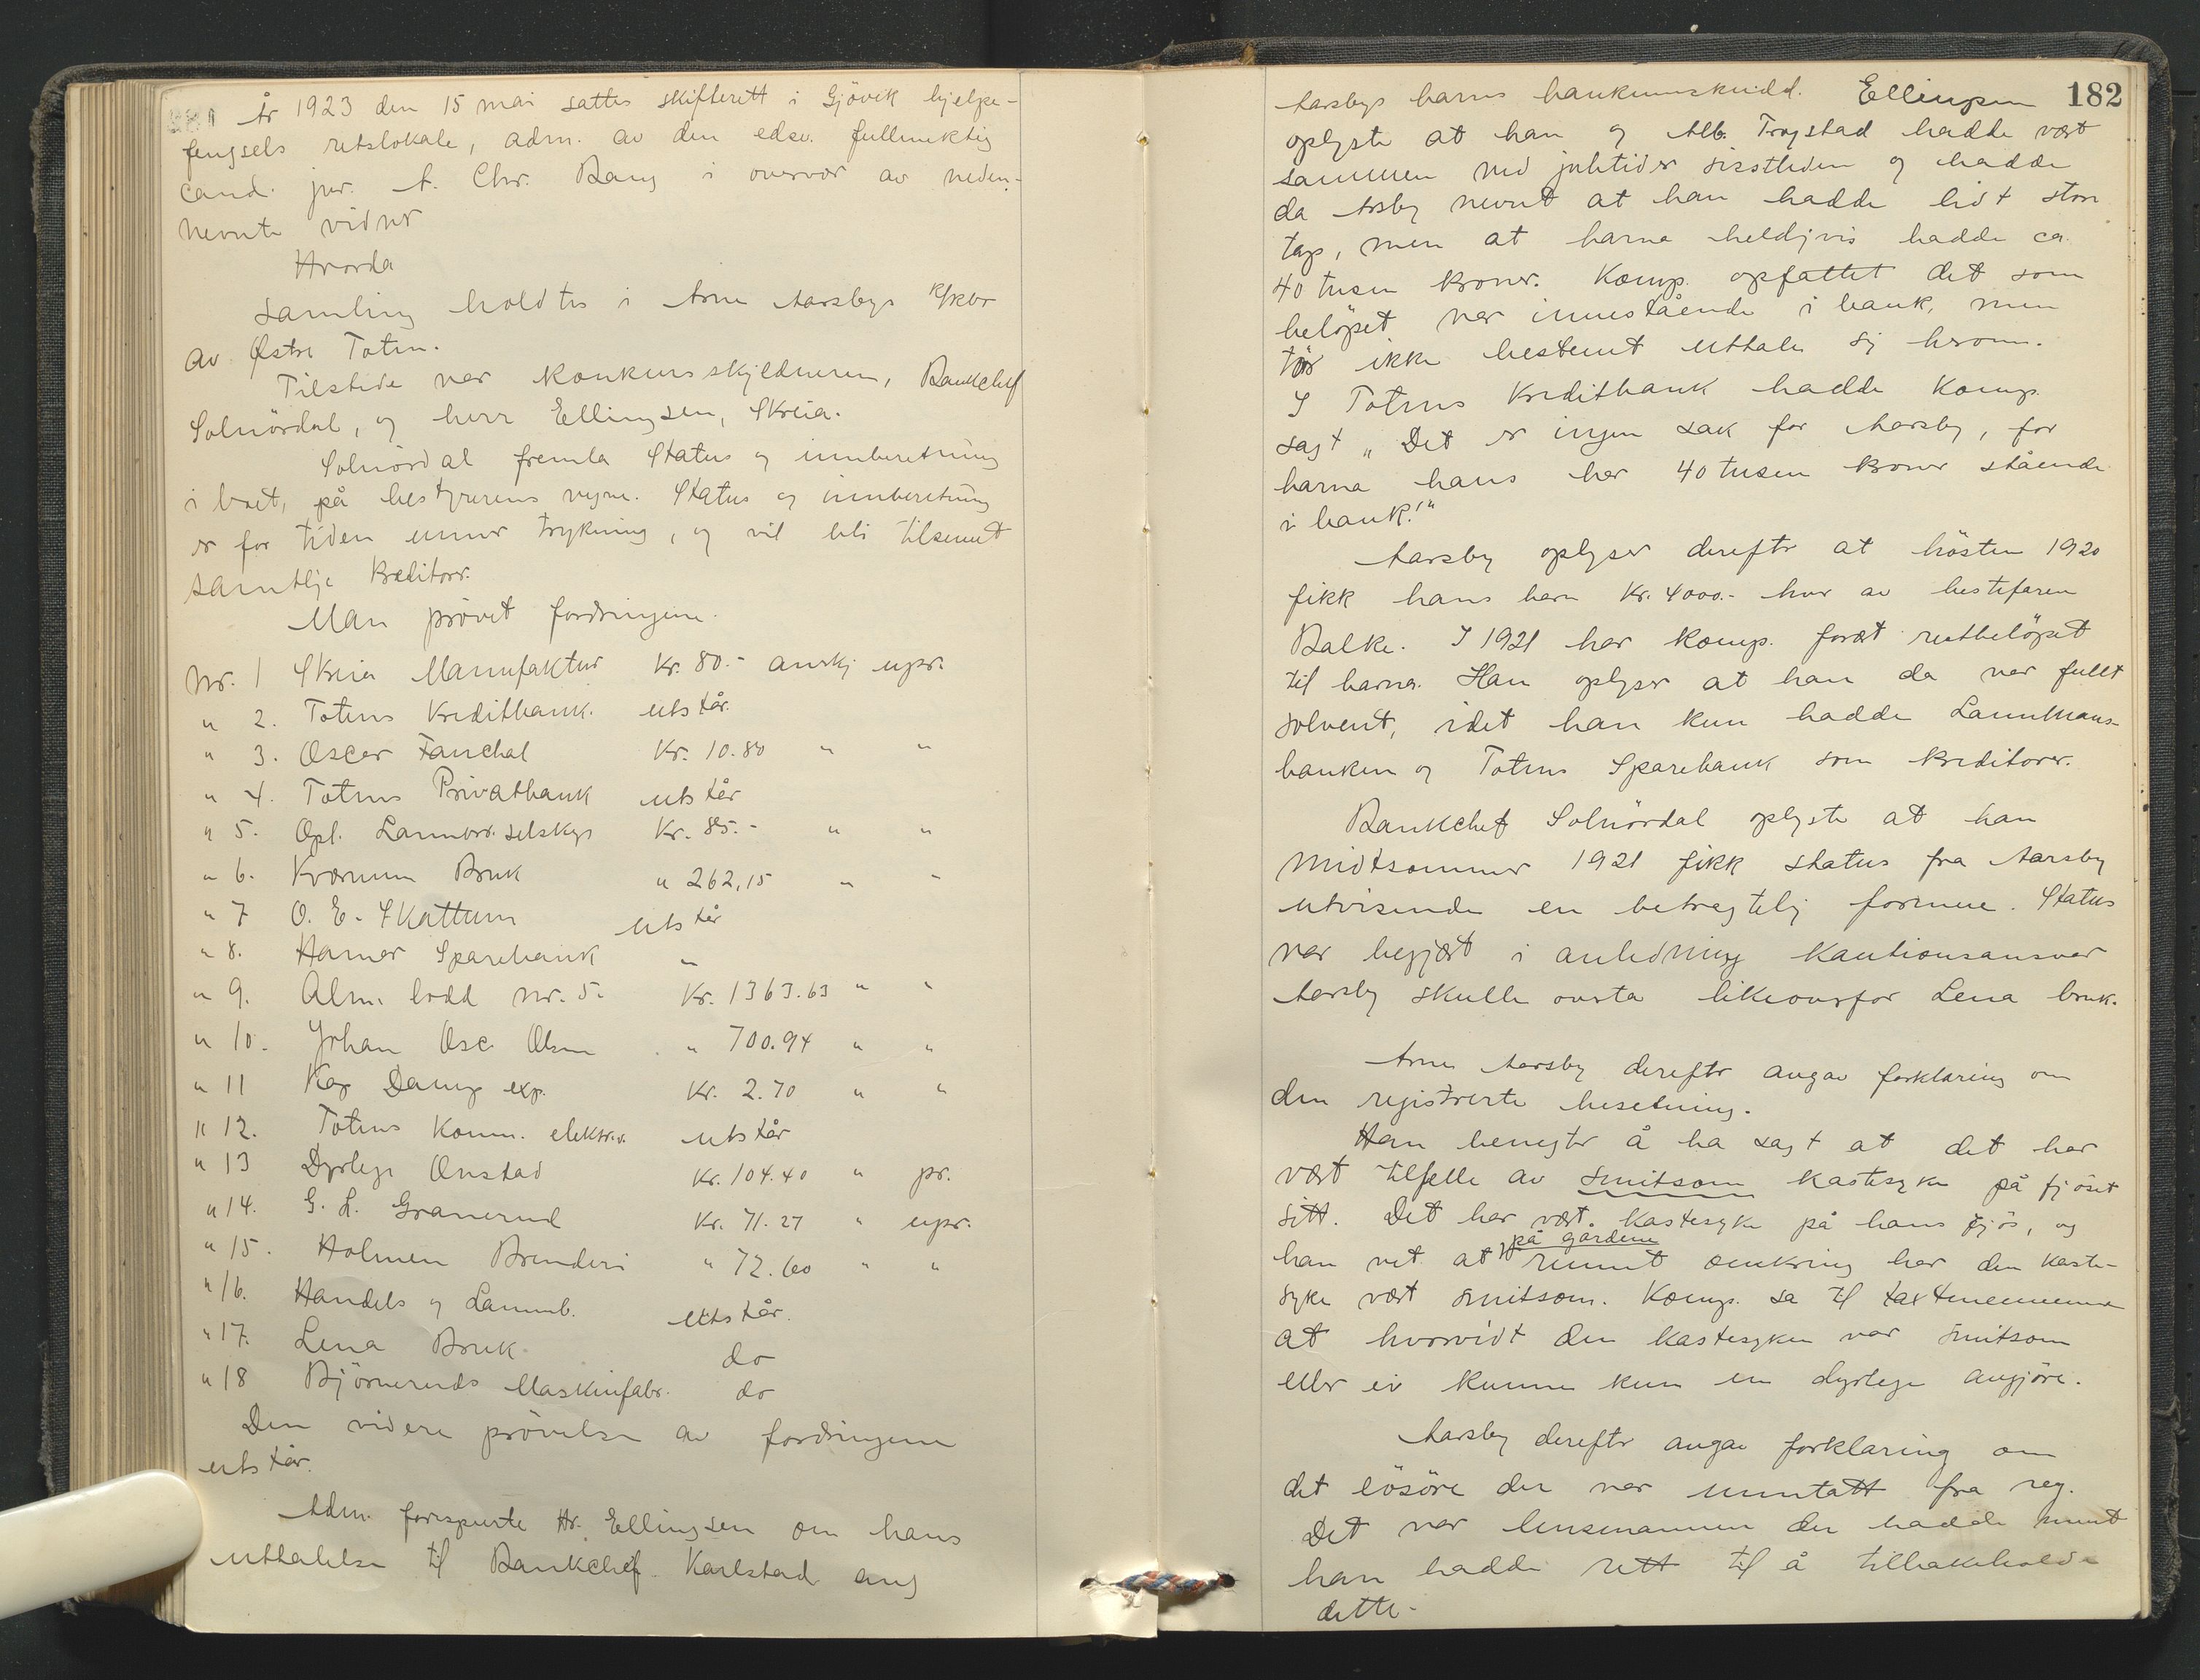 År 1923 den 15 mai sattes skifterett i Gjövik hjelpe-
fengsels retslokale, adm. av den edsv. fullmektig
cand. jur. A. Chr. Bang i overvær av neden-
nevnte vidner
Hvorda
samling holdtes i Arne Aarsbys k/kbo
av Østre Toten.
Tilstede var konkursskjeldneren, Bankchef
Solnördal, og herr Ellingsen, Skreia.
Solnördal fremla Status og innberetning
i boet, på bestyrerens vegne. Status og innberetning
er for tiden unner trykning, og vil bli tilsennt
samtlige kreditorer.
Man prövet fordringene.
Nr. 1 Skreia Manufaktur Kr. 80.- anerkj. upr.
" 2. Totens Kreditbank. utstår.
" 3. Oscar Fauchal Kr. 10.80 " "
" 4. Totens Privatbank utstår
" 5. Opl. Lannbr. selskap Kr. 85.- " "
" 6. Kværnum Bruk " 262,15 " "
" 7 O. E. Skattum utstår
" 8. Hamar Sparebank "
" 9. Alm. lodd nr. 5. Kr. 1363.63 " "
" 10. Johan Osc. Olsen " 700.94 " "
" 11 Kap Damp exp. Kr. 2.70 " "
" 12. Totens Komm. elektr.v. utstår
" 13 Dyrlege Onstad Kr. 104.40 " pr.
" 14. G. L. Granerud Kr. 71.27 " upr.
" 15. Holmen Brenderi " 72.60 " "
" 16. Handels og Lannmb. utstår.
" 17. Lena Bruk. do
" 18 Björneruds Maskinfabr. do
Den videre prövelse av fordringene
utstår.
Adm. forespurte Hr. Ellingsen om hans
uttalelse til Bankchef Karlstad ang
182
Aarsbys barns bankinnskudd. Ellingsen
oplyste at han og Alb. Trogstad hadde vært
sammen ved juletider sisstleden og hadde
da Arsby nevnt at han hadde lidt store
tap, men at barna heldigvis hadde ca.
40 tusen kroner. Komp. opfattet det som
belöpet var innestående i bank, men
tör ikke bestemt uttale sig herom.
I Totens Kreditbank hadde Komp.
sagt „Det er ingen sak for Aarsby, for
barna hans har 40 tusen kroner stående
i bank!"
Aarsby oplyser derefter at hösten 1920
fikk hans barn Kr. 4000.- hver av bestefaren
Balke. I 1921 har komp. foræt restbelöpet
til barna. Han oplyser at han da var fullt
solvent, idet han kun hadde Lannmans-
banken og Totens Sparebank som kreditorer.
Bankchef Solnördal oplyste at han
midtsommer 1921 fikk status fra Aarsby
utvisende en betragtelig formue. Status
var begjært i anledning kautionsansvar
Aarsby skulle overta likeoverfor Lena bruk.
Arne Aarsby derefter avgav forklaring om
den registrerte besetning.
Han benegter å ha sagt at det har
vært tilfelle av smitsom kastesyke på fjöset
sitt. Det har vært kastesyke på hans fjös, og
på gardene
han vet at runnt omkring har den kaste-
syke vært smitsom. Komp. sa til takstmennene
at hvorvidt den kastesyken var smitsom
eller ei kunne kun en dyrlege avgjöre.
Aarsby derefter avgav forklaring om
det lösöre der var unntatt fra reg.
Det var lensmannen der hadde ment
han hadde rett til å tilbakeholde
dette.-